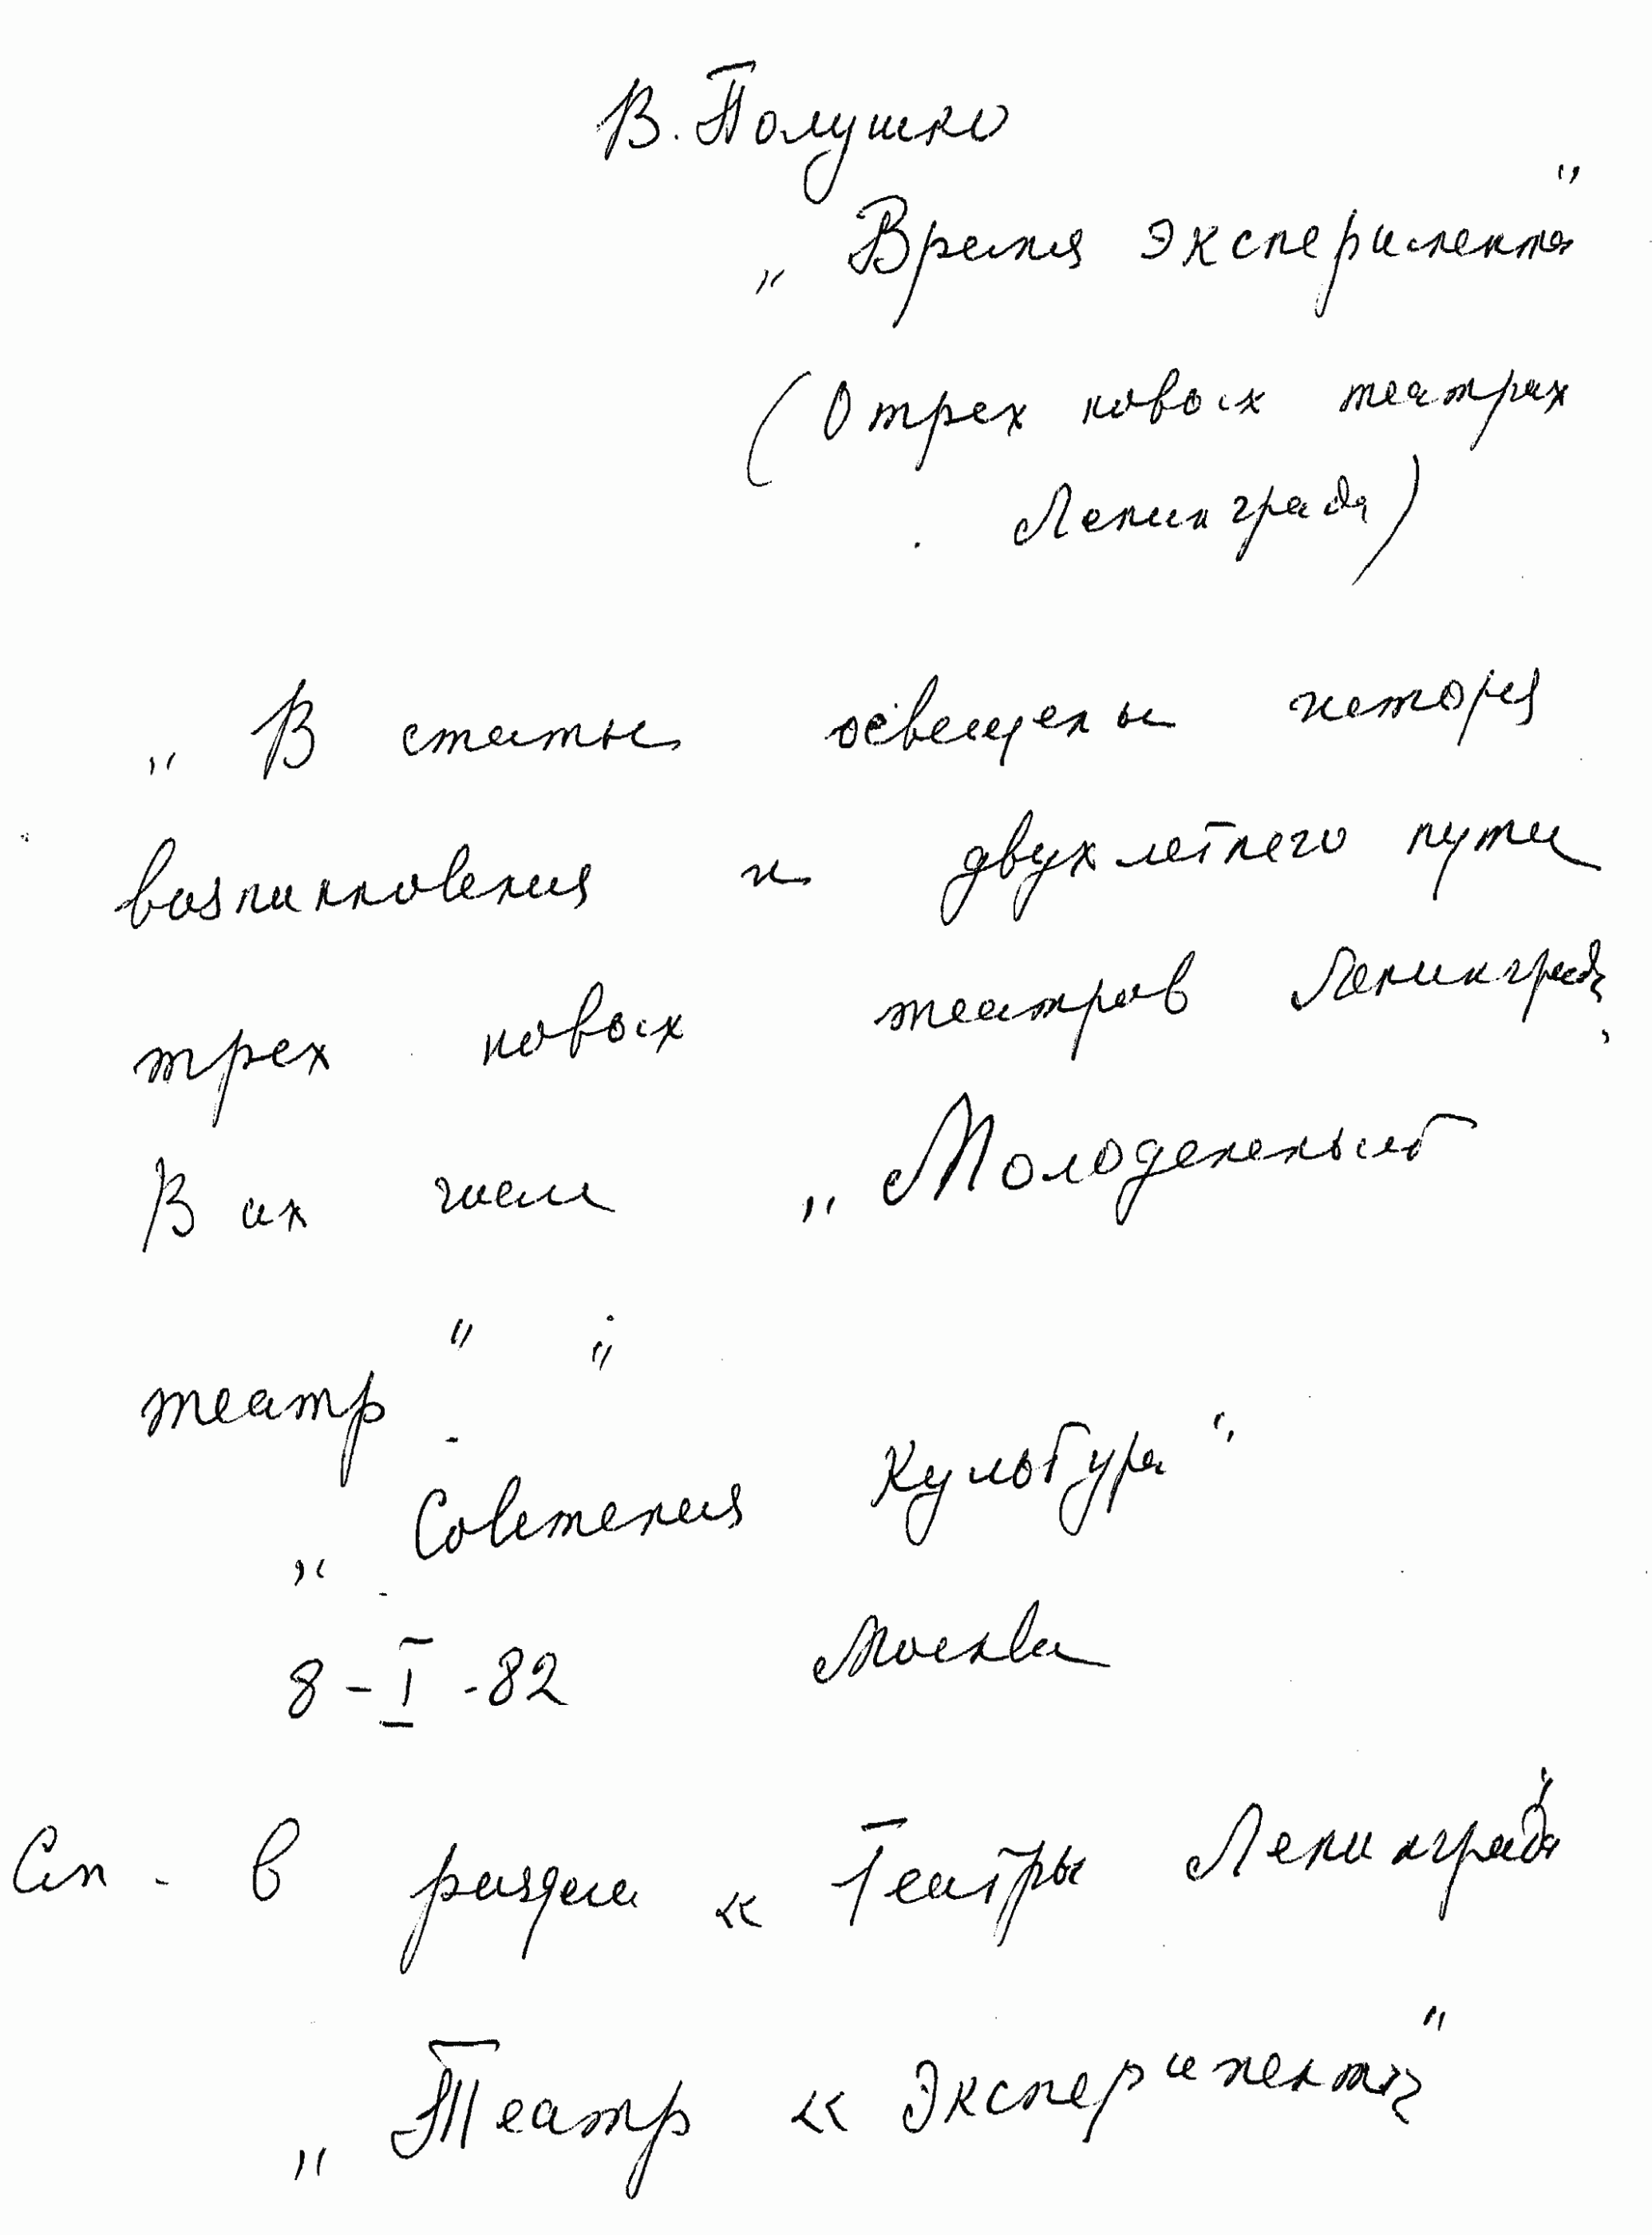 В. Полушко
„Время эксперимента"
(О трех новых театрах
Ленинграда)
„В статье освещены история
возникновения и двухлетнего пути
трех новых театров Ленинграда,
В их числе „Молодежный
театр"
„Советская культура"
8-I-82 Москва
См. в разделе « Театры Ленинграда"
„Театр « Эксперимент"